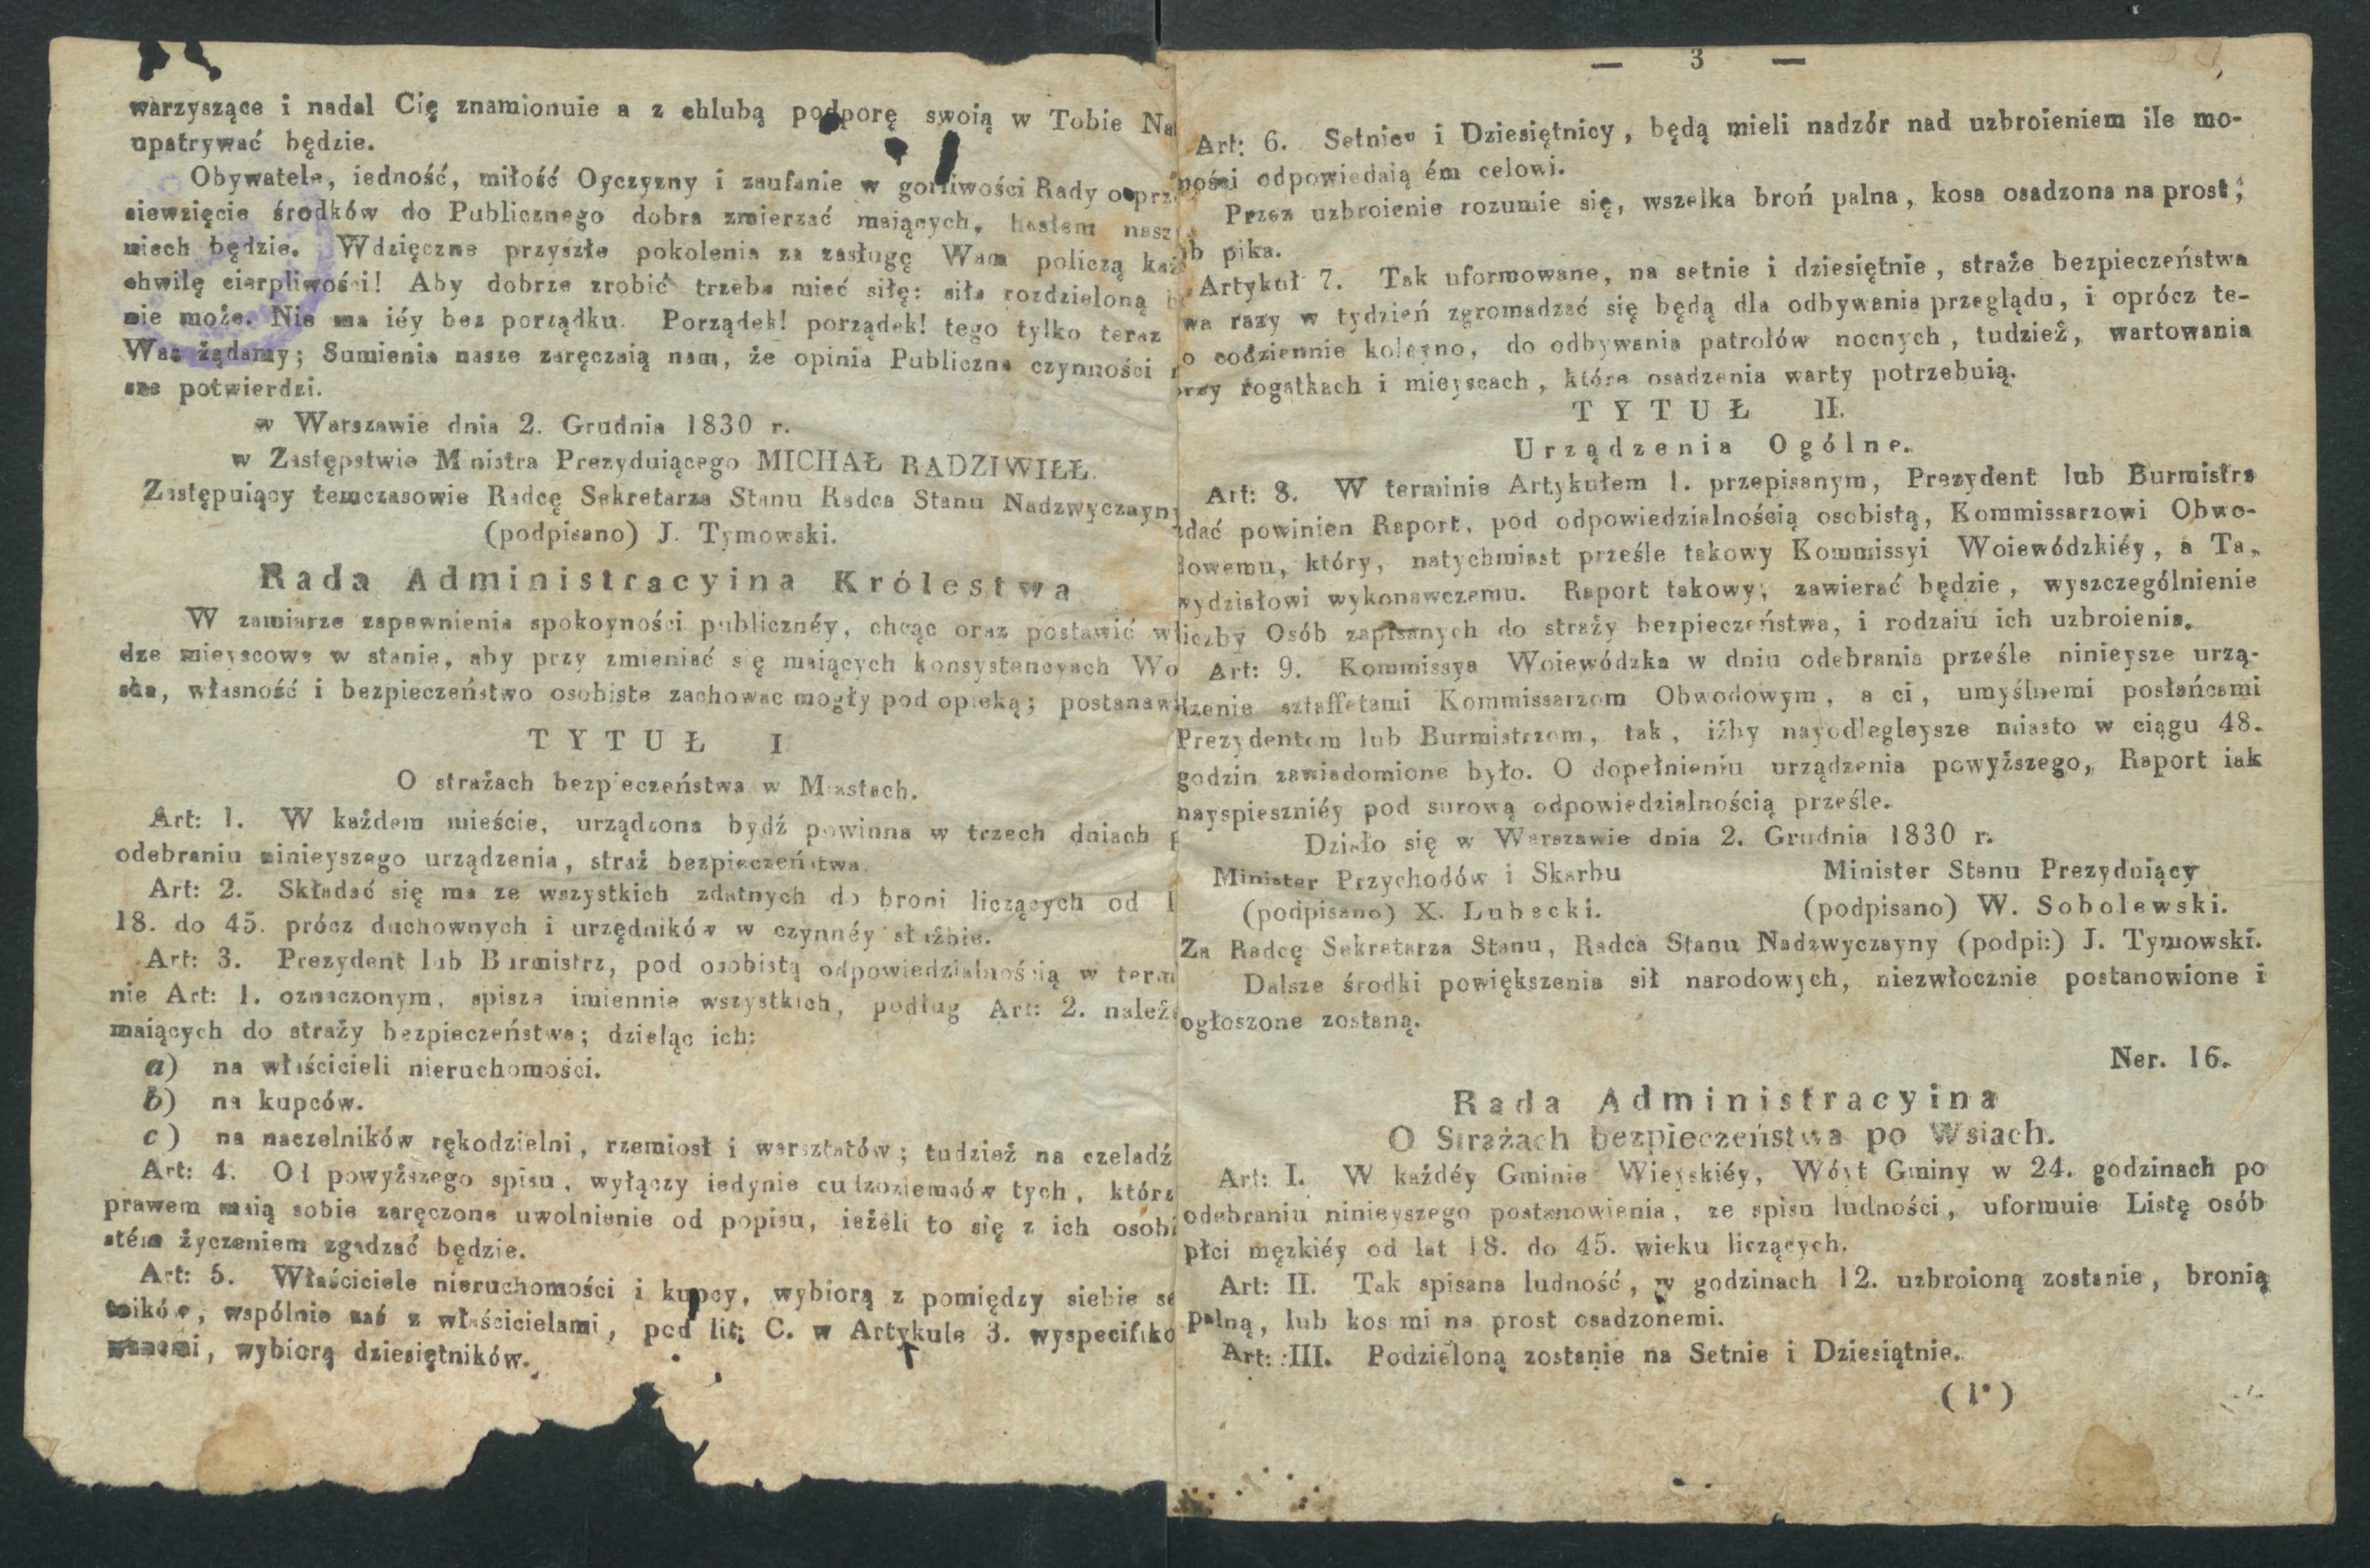 warzyszące i nadal Cię znamionuie a z chlubą podporę swoią w Tobie Na
upatrywać będzie.
Obywatele, iedność, miłość Oyczyzny i zaufanie w gorliwości Rady o prz
siewzięcie środków do Publicznego dobra zmierzać maiących, hasłem nasz
miech będzie. Wdzięczne przyszłe pokolenia za zasługę Wam policzą każ
chwilę cierpliwości! Aby dobrze zrobić trzeba mieć siłę: siła rozdzieloną
nie może. Nie ma iéy bez porządku. Porządek! porządek! tego tylko teraz
Was żądamy; Sumienia nasze zaręczaią nam, że opinia Publiczna czynności
sze potwierdzi.
w Warszawie dnia 2. Grudnia 1830 r.
w Zastępstwie Mnistra Prezyduiącego MICHAŁ RADZIWIŁŁ.
Zastępuiący temczasowie Radcę Sekretarza Stanu Radca Stanu Nadzwyczayny
(podpisano) J. Tymowski.
Rada Administracyina Królestwa
W zamiarze zapewnienia spokoyności publicznéy, chcąc oraz postawić w
dze mieyscowe w stanie, aby przy zmieniać się maiących konsystencyach Wo
ska, własność i bezpieczeństwo osobiste zachowac mogły pod opieką; postanaw
TYTUŁ I
O strażach bezpieczeństwa w Miastach.
Art: 1. W każdem mieście, urządzona bydź powinna w trzech dniach p
odebraniu ninieyszego urządzenia, straż bezpieczeństwa.
Art: 2. Składać się ma ze wszystkich zdatnych do broni liczących od l
18. do 45. prócz duchownych i urzędników w czynnéy służbie.
Art: 3. Prezydent lub Burmistrz, pod osobistą odpowiedzialnością w termi
nie Art: 1. oznaczonym, spisze imiennie wszystkich, podług Art: 2. należe
maiących do straży bezpieczeństwa; dzieląc ich:
a) na właścicieli nieruchomości.
b) na kupców.
c) na naczelników rękodzielni, rzemiosł i warsztatów; tudzież na czeladź
Art: 4. Od powyższego spisu, wyłączy iedynie cudzoziemców tych, którz
prawem maią sobie zaręczone uwolnienie od popisu, ieżeli to się z ich osobi
stém życzeniem zgadzać będzie.
Art: 5. Właściciele nieruchomości i kupcy, wybiorą z pomiędzy siebie se
tników, wspólnie zaś z właścicielami, pod lit: C. w Artykule 3. wyspecifiko
wanemi, wybiorą dziesiętników.
— 3 —
Art: 6. Setnicy i Dziesiętnicy, będą mieli nadzór nad uzbroieniem ile mo-
ności odpowiedaią ém celowi.
Przez uzbroienie rozumie się, wszelka broń palna, kosa osadzona na prost,
b pika.
Artykuł 7. Tak uformowane, na setnie i dziesiętnie, straże bezpieczeństwa
wa razy w tydzień zgromadzać się będą dla odbywania przeglądu, i oprócz te-
o codziennie koleyno, do odbywania patrolów nocnych, tudzież, wartowania
przy rogatkach i mieyscach, które osadzenia warty potrzebuią.
TYTUŁ II.
Urządzenia Ogólne.
Art: 8. W terminie Artykułem 1. przepisanym, Prezydent lub Burmistrz
zdać powinien Raport, pod odpowiedzialnością osobistą, Kommissarzowi Obwo-
dowemu, który, natychmiast prześle takowy Kommissyi Woiewódzkiéy, a Ta,
wydziałowi wykonawczemu. Raport takowy, zawierać będzie, wyszczególnienie
liczby Osób zapisanych do straży bezpieczeństwa, i rodzaiu ich uzbroienia.
Art: 9. Kommissya Woiewódzka w dniu odebrania prześle ninieysze urzą-
dzenie sztaffetami Kommissarzom Obwodowym, a ci, umyślnemi posłańcami
Prezydentom lub Burmistrzom, tak, iżby nayodlegleysze miasto w ciągu 48.
godzin zawiadomione było. O dopełnieniu urządzenia powyższego, Raport iak
nayspieszniéy pod surową odpowiedzialnością prześle.
Działo się w Warszawie dnia 2. Grudnia 1830 r.
Minister Przychodów i Skarbu Minister Stanu Prezyduiący
(podpisano) X. Lubecki. (podpisano) W. Sobolewski.
Za Radcę Sekretarza Stanu, Radca Stanu Nadzwyczayny (podpi:) J. Tymowski.
Dalsze środki powiększenia sił narodowych, niezwłocznie postanowione i
ogłoszone zostaną.
Ner. 16.
Rada Administracyina
O Strażach bezpieczeństwa po Wsiach.
Art: I. W każdéy Gminie Wieyskiéy, Wóyt Gminy w 24. godzinach po
odebraniu ninieyszego postanowienia, ze spisu ludności, uformuie Listę osób
płci męzkiéy od lat 18. do 45. wieku liczących.
Art: II. Tak spisana ludność, w godzinach 12. uzbroioną zostanie, bronią
palną, lub kosami na prost osadzonemi.
Art: III. Podzieloną zostanie na Setnie i Dziesiątnie.
(1*)